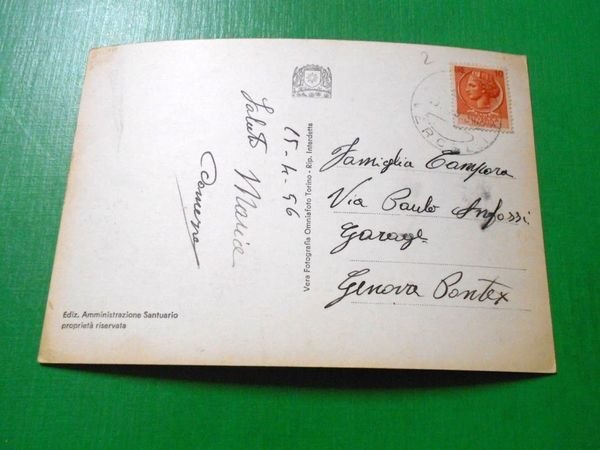 15-4-56
Saluti Maria
Vera Fotografia Omniafoto Torino - Rip. Interdetta
Famiglia Campora
Via Paolo Anfossi
Garage
Genova Pontex
Ediz. Amministrazione Santuario
proprietà riservata
2